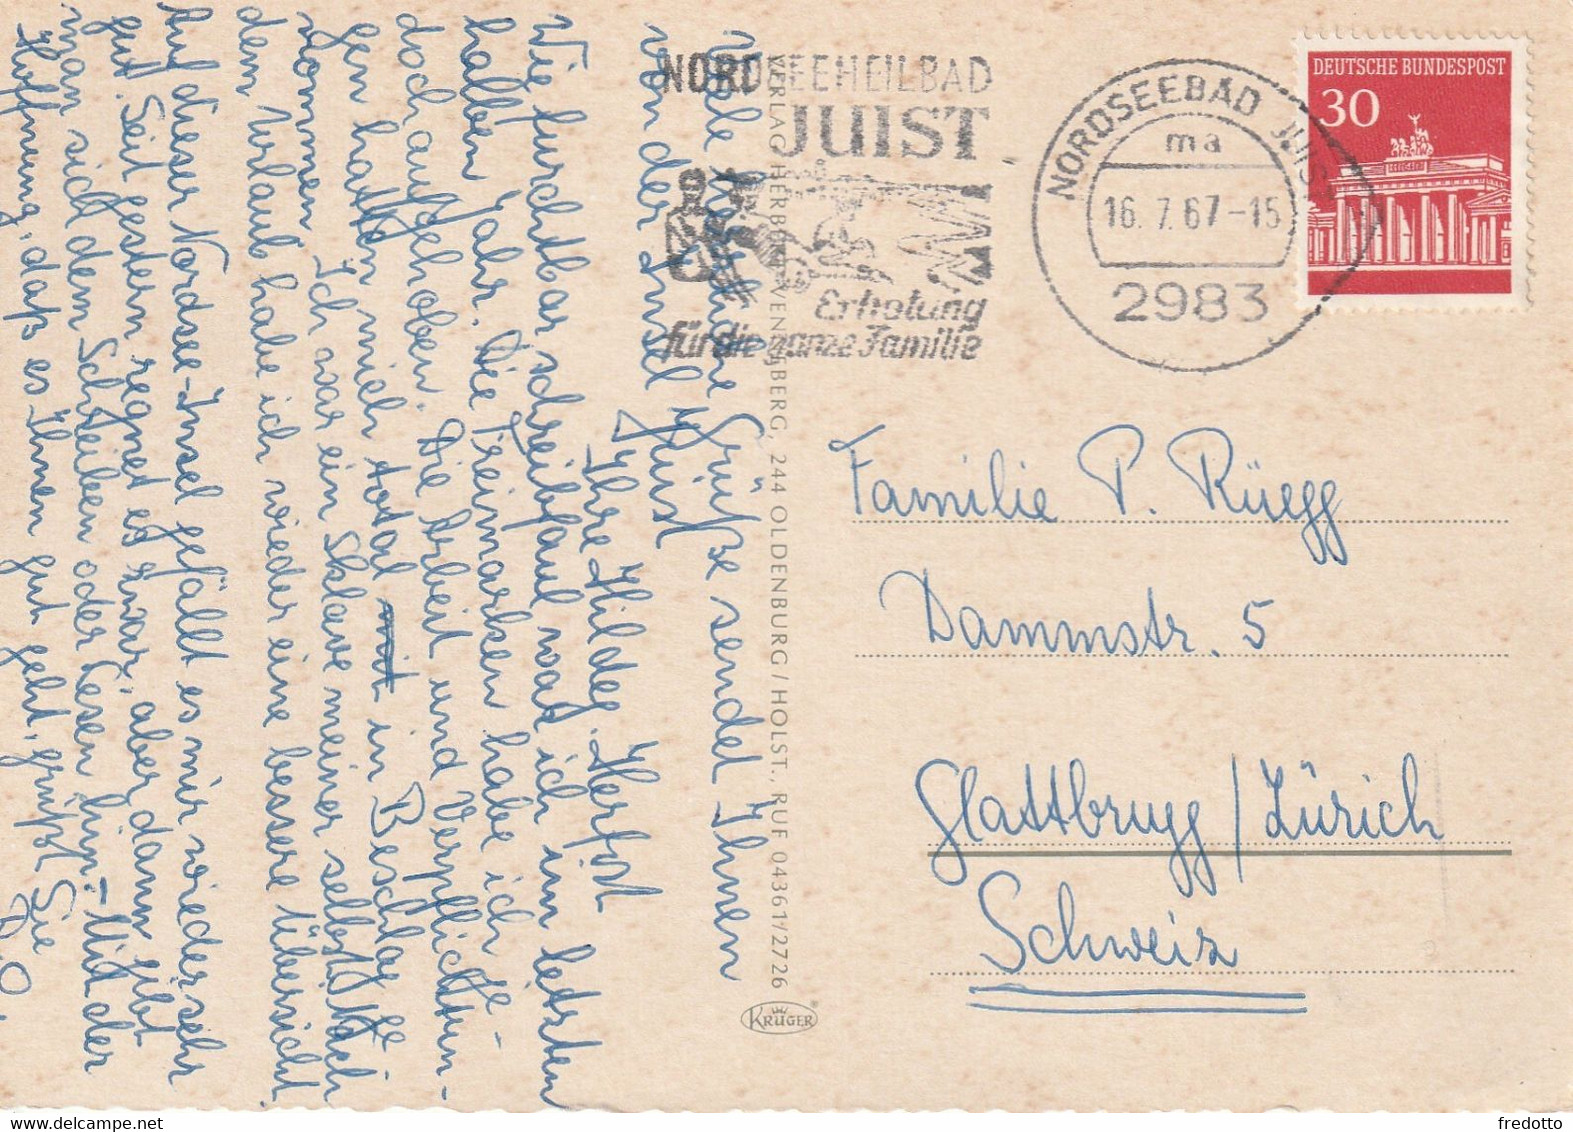 Viele herzliche Grüße sendet Ihnen
von der Insel Juist
Ihre Hildeg. Herbst
Wie furchtbar schreibfaul war ich im letzten
halben Jahr. Die Freimarken habe ich je-
doch aufgehoben. Die Arbeit und Verpflichtun-
gen hatten mich total in Beschlag ge
nommen. Ich war ein Sklave meiner selbst. Nach
dem Urlaub habe ich wieder eine bessere Übersicht.
Auf dieser Nordsee-Insel gefällt es mir wieder sehr
gut. Seit gestern regnet es zwar, aber dann gibt
man sich dem Schreiben oder Lesen hin. - Mit der
Hoffnung, daß es Ihnen gut geht, grüßt Sie
D.O.
VERLAG HERBERT WENNBERG, 244 OLDENBURG / HOLST., RUF 04361/2726
KRÜGER
NORDSEEHEILBAD
JUIST
Erholung
für die ganze Familie
NORDSEEBAD JUIST
ma
16. 7. 67 - 15
2983
DEUTSCHE BUNDESPOST
30
Familie P. Rüegg
Dammstr. 5
Glattbrugg / Zürich
Schweiz
fredotto
delcampe.net